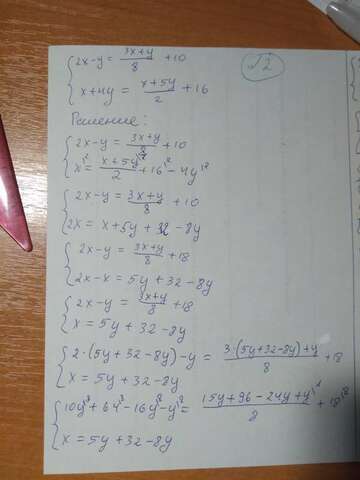 2x-y = 3x+y/8 + 10
√2
x+4y = x+5y/2 + 16
Решение:
2x-y = 3x+y/8 + 10
x = x+5y/2 + 16 - 4y
2x-y = 3x+y/8 + 10
2x = x+5y + 32 - 8y
2x-y = 3x+y/8 + 18
2x-x = 5y + 32 - 8y
2x-y = 3x+y/8 + 18
x = 5y + 32 - 8y
2·(5y+32-8y)-y = 3·(5y+32-8y)+y/8 + 18
x = 5y + 32 - 8y
10y + 64 - 16y - y = 15y+96-24y+y/8 + 18
x = 5y + 32 - 8y